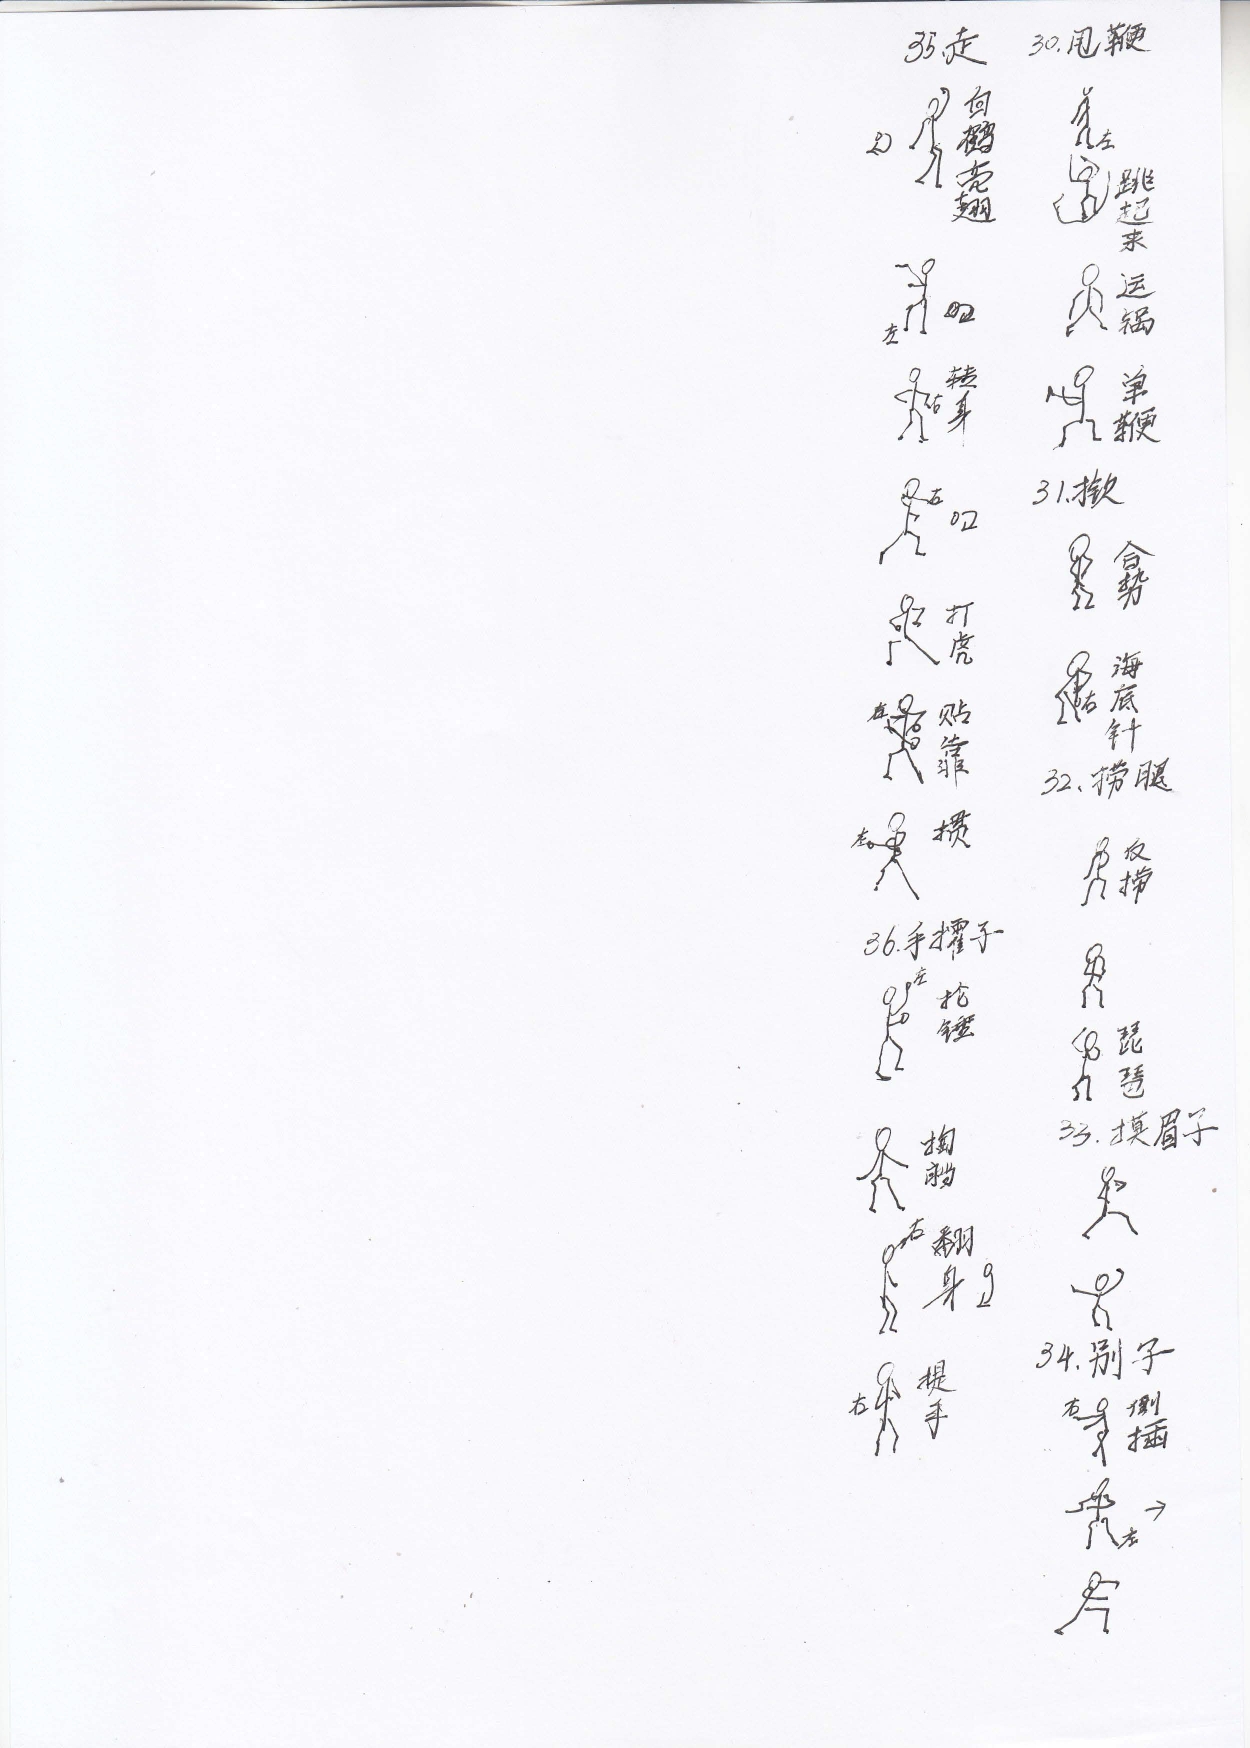 30.甩鞭
左
跳起来
运锅
单鞭
31.揿
合势
海底针
右
32.捞腿
反捞
琵琶
33.摸眉子
34.别子
右
倒插
→
左
35.走
白鹤亮翅
左
转身
右
右
打虎
贴靠
左
掼
左
36.手擢子
左
抡锤
掏裆
右
翻身
提手
右